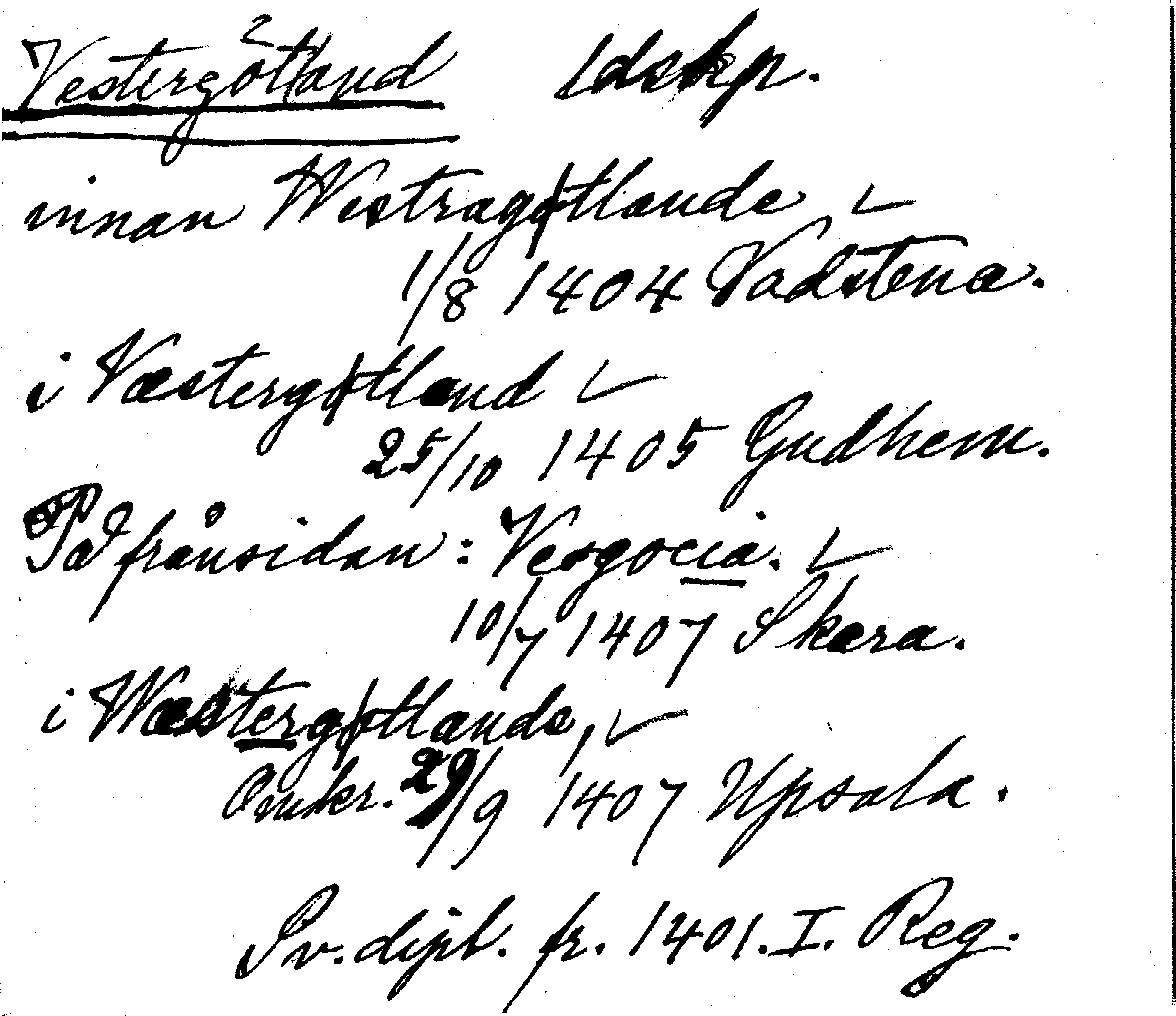 Vestergötland ldskp.
innan Westragøtlande,
1/8 1404 Vadstena.
i Væstergøtland
25/10 1405 Gudhem.
På frånsidan: Vesgocia.
10/7 1407 Skara.
i Wæstergøtlande,
Omkr. 29/9 1407 Upsala.
Sv. dipl. fr. 1401. I. Reg.